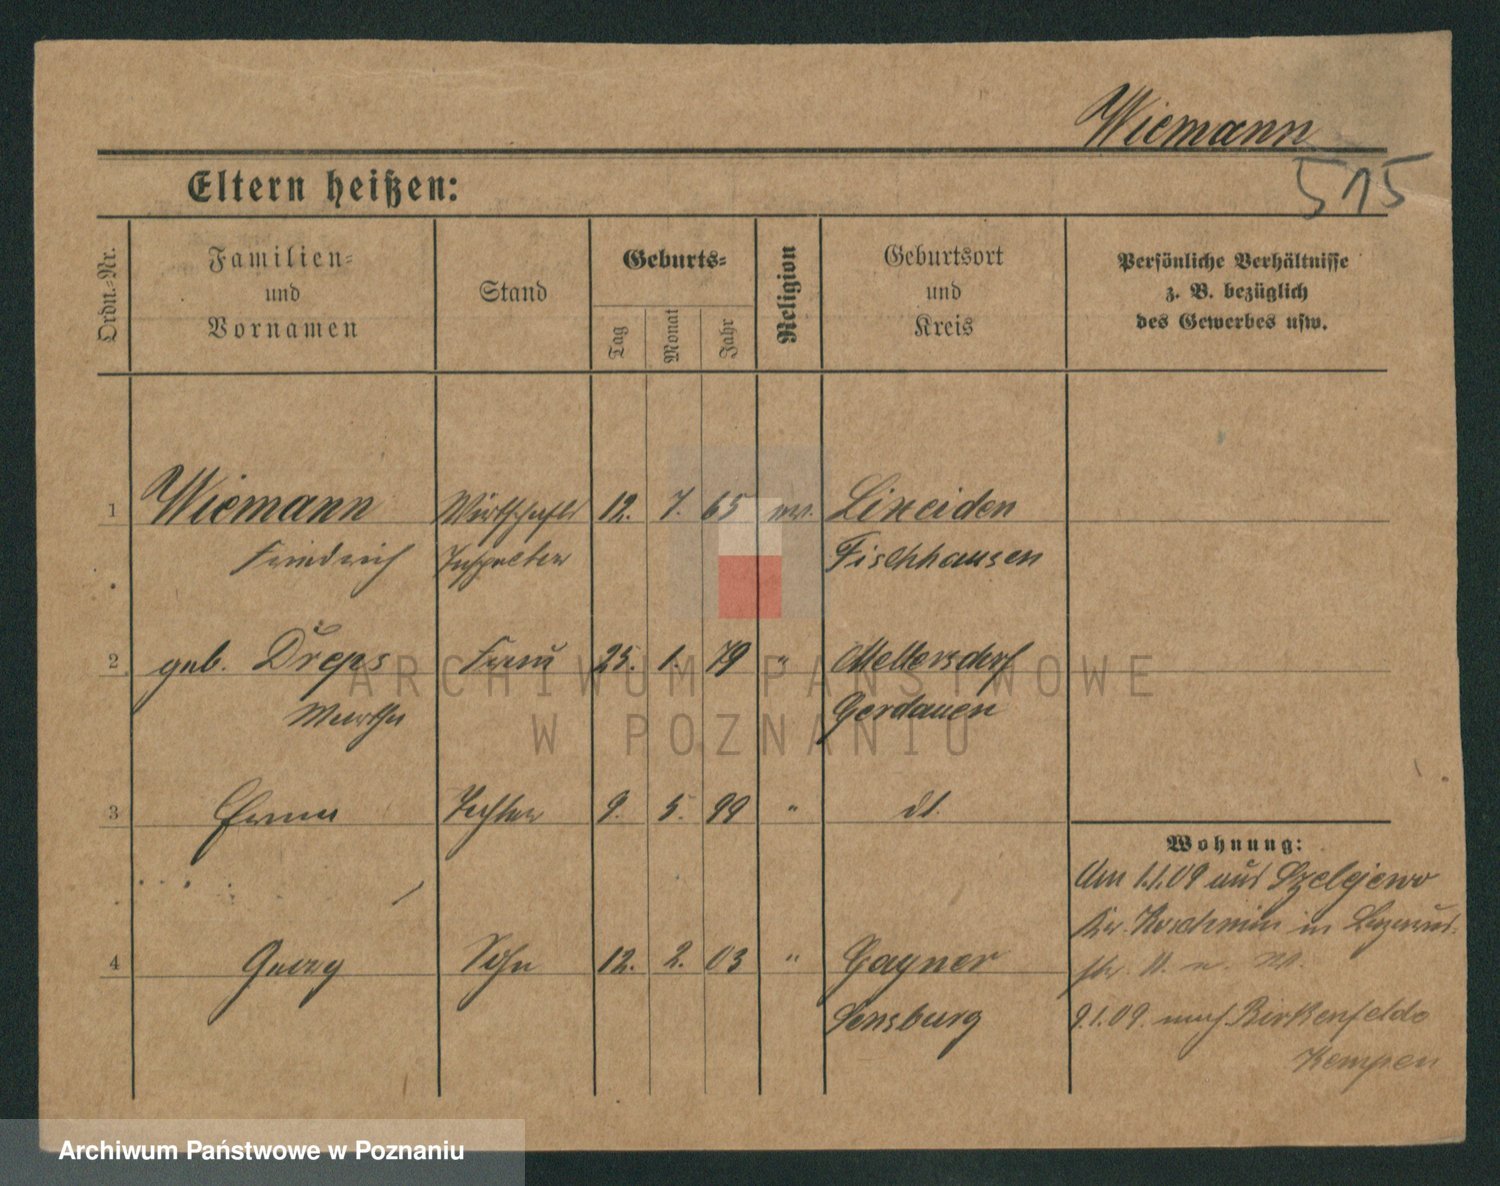 Wiemann
515
Eltern heißen:
Ordn.-Nr.
Familien-
und
Vornamen
Stand
Geburts-
Tag
Monat
Jahr
Religion
Geburtsort
und
Kreis
Persönliche Verhältnisse
z. B. bezüglich
des Gewerbes usw.
1 Wiemann Wirtschafts 12. 7. 65 ev. Lixeiden
Friedrich Inspektor Fischhausen
2 geb. Dreps Frau 25. 1. 79 " Mellersdorf
Martha Gerdauen
3 Erna Tochter 9. 5. 99 " dt.
Wohnung:
Am 1.1.09 aus Szelejewo
Kr. Koschmin in
4 Georg Sohn 12. 2. 03 " Gayner
Sensburg
9.1.09. nach Birkenfelde
Kempen
ARCHIWUM PAŃSTWOWE
W POZNANIU
Archiwum Państwowe w Poznaniu